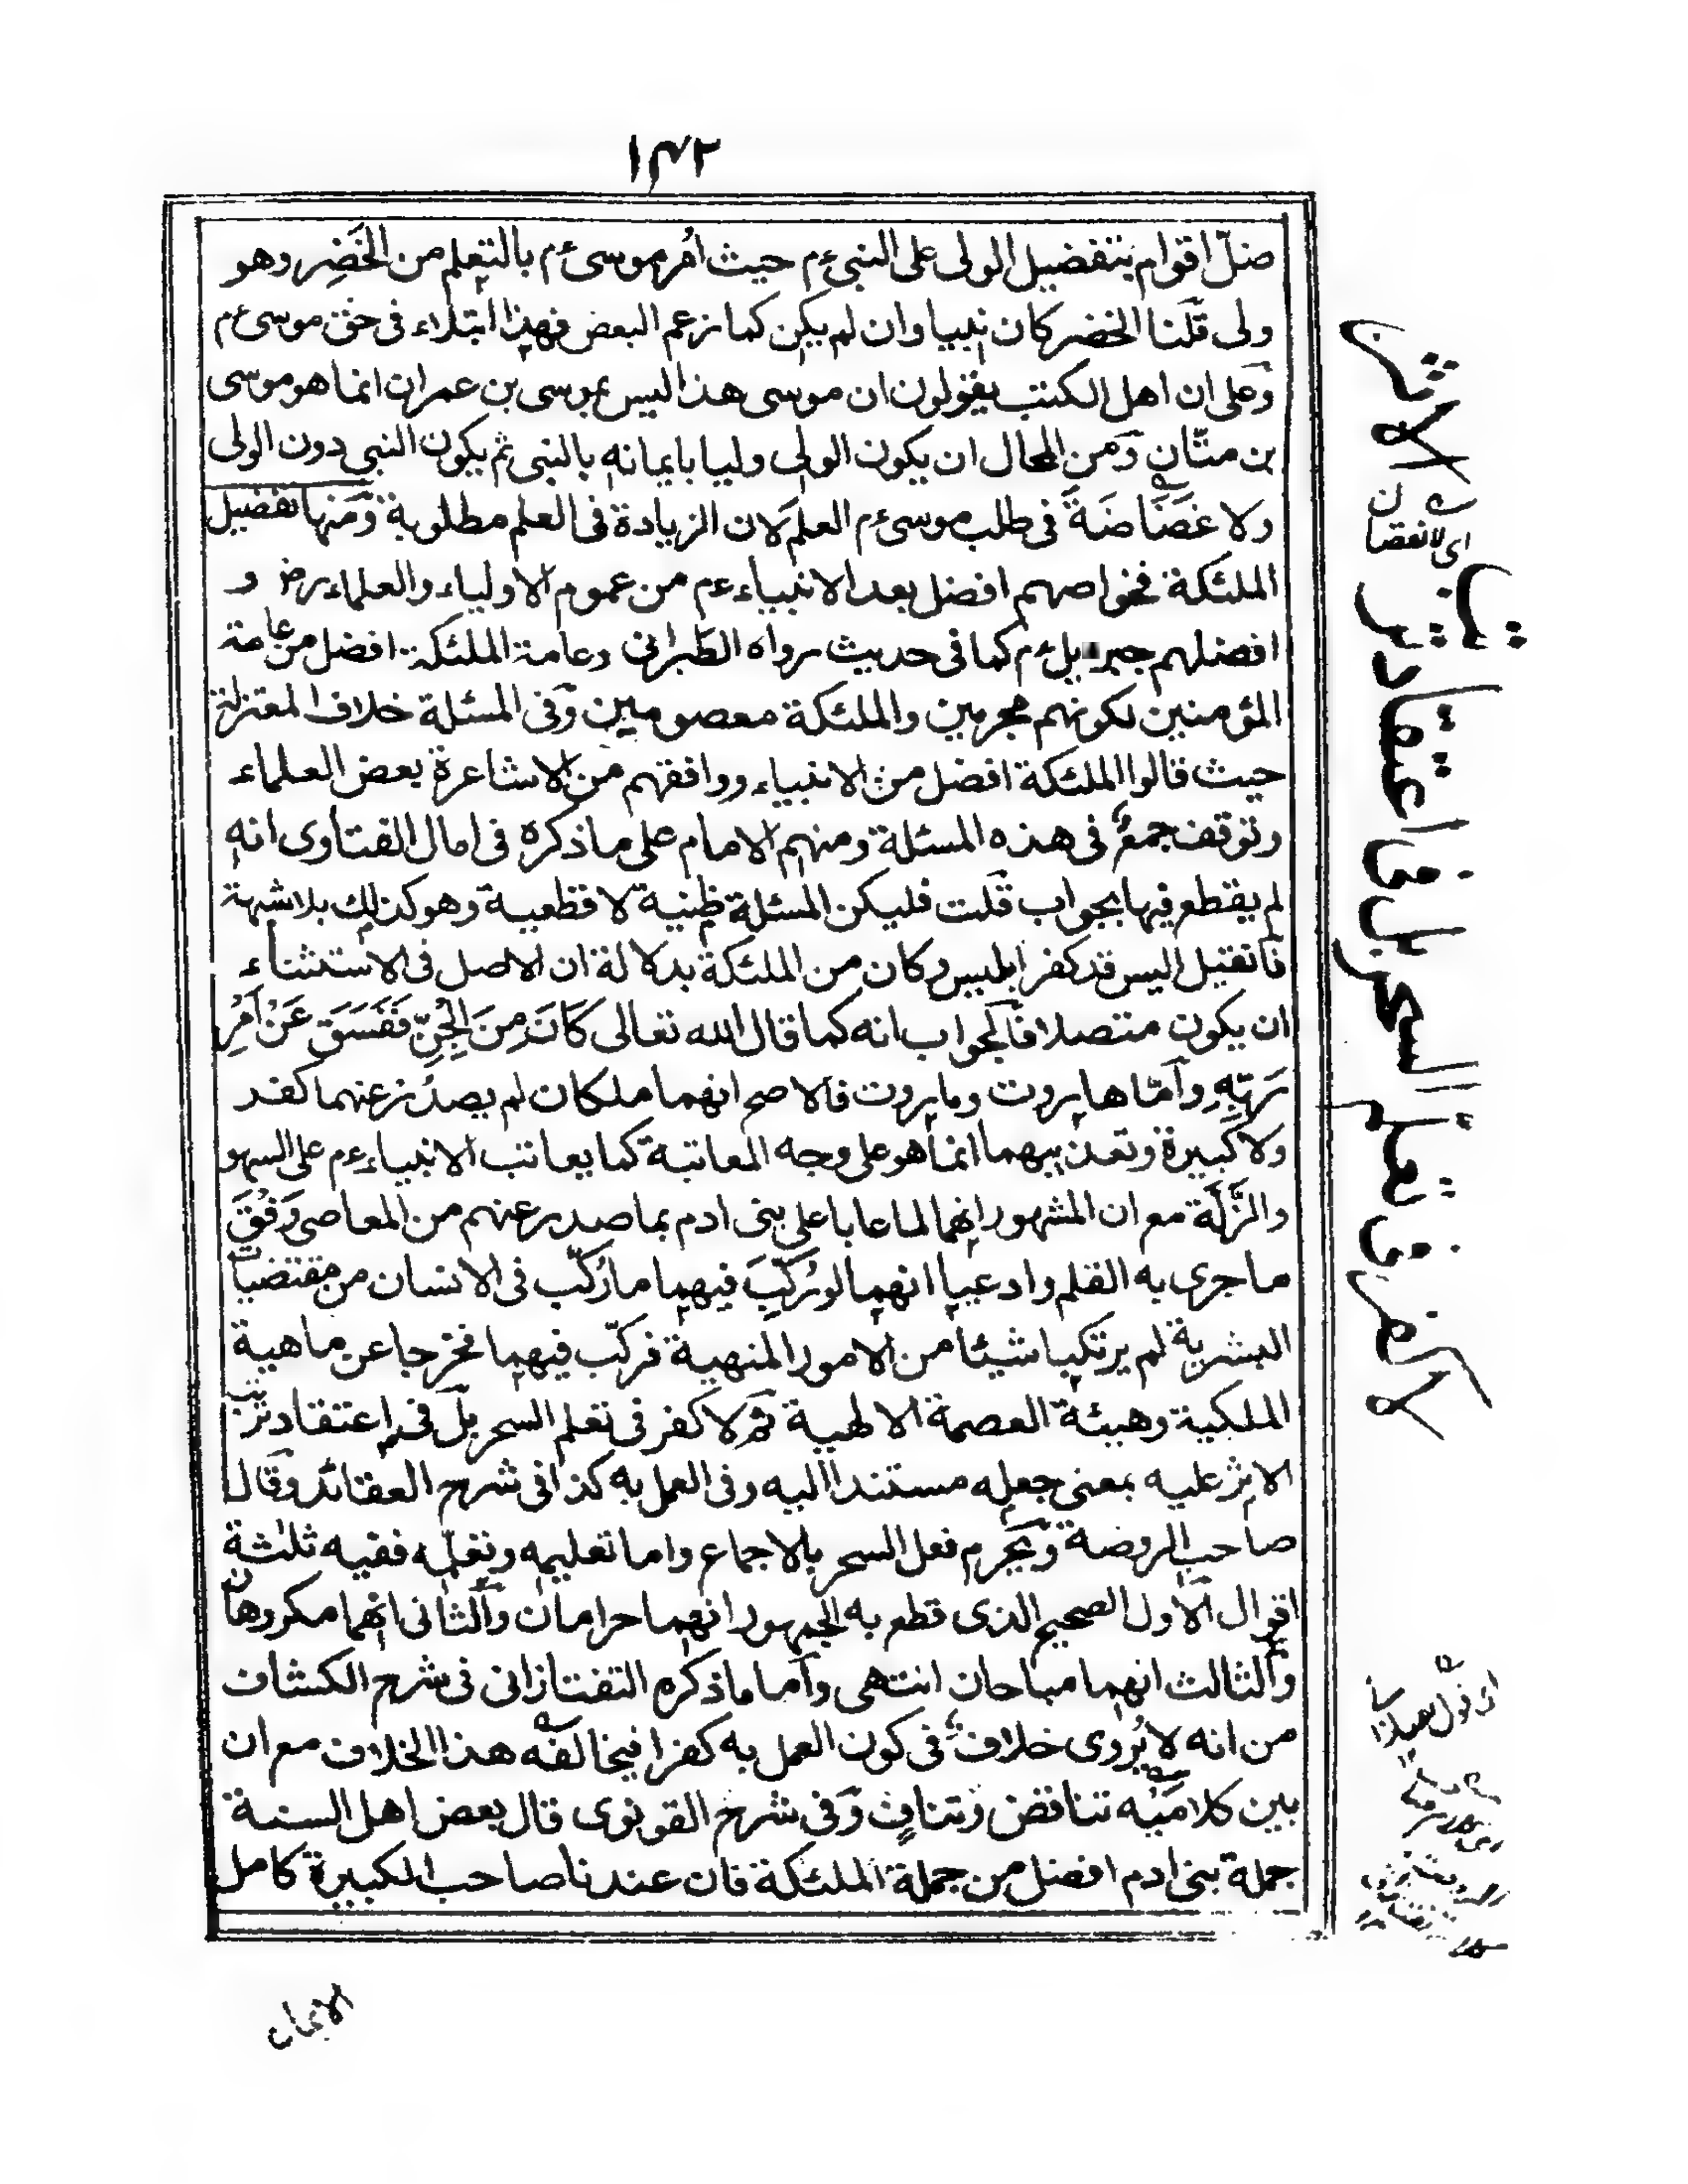 ١٤٢
ضلّ اقوام بتفضيل الولى على النبى ءم حيث اُمر موسى ءم بالتعلم من الخَضِر وهو
ولى قلنا الخضر كان نبيا وان لم يكن كما زعم البعض فهذا ابتلاء فى حق موسى ءم
وعلى ان اهل الكتب يقولون ان موسى هذا ليس بموسى بن عمران انما هو موسى
بن متّان ومن المحال ان يكون الولى وليا بايمانه بالنبى ثم يكون النبى دون الولى
ولا غَضَاضَةَ فى طلب موسى ءم العلم لان الزيادة فى العلم مطلوبة ومنها تفضيل
الملئكة فخواصهم افضل بعد الانبياء ءم من عموم الاولياء والعلماء رض و
افضلهم جبرايل ءم كما فى حديث رواه الطبرانى وعامة الملئكة افضل من عامة
المؤمنين لكونهم مجرمين والملئكة معصومين وفى المسئلة خلاف المعتزلة
حيث قالوا الملئكة افضل من الانبياء ووافقهم من الاشاعرة بعض العلماء
وتوقف جمعٌ فى هذه المسئلة ومنهم الامام على ما ذكره فى امال الفتاوى انه
لم يقطع فيها بجواب قلت فليكن المسئلة ظنية لا قطعية وهو كذلك بلا شبهة
فان قيل اليس قد كفر ابليس وكان من الملئكة بدلالة ان الاصل فى الاستثناء
ان يكون متصلا فالجواب انه كما قال الله تعالى كَانَ مِنَ الْجِنِّ فَفَسَقَ عَنْ اَمْرِ
رَبِّهِ وامّا هاروت وماروت فالاصح انهما ملكان لم يصدُر عنهما كفر
ولا كبيرة وتعذيبهما انما هو على وجه المعاتبة كما يعاتب الانبياء ءم على السهو
والزَّلّة مع ان المشهور انهما لما عابا على بنى ادم بما صدر عنهم من المعاصى وَفْقَ
ما جرى به القلم وادعيا انهما لو رُكّبَ فيهما ما رُكّب فى الانسان من مقتضيات
البشرية لم يرتكبا شيئا من الامور المنهية فركّب فيهما فخرجا عن ماهية
الملكية وهيئة العصمة الالهية ثم لا كفر فى تعلم السحر بل فى اعتقاد ترتب
الاثر عليه بمعنى جعله مستندا اليه وفى العمل به كذا فى شرح العقائد وقال
صاحب الروضة ويحرم فعل السحر بالاجماع واما تعليمه وتعلمه ففيه ثلثة
اقوال الاول الصحيح الذى قطع به الجمهور انهما حرامان والثانى انهما مكروهان
والثالث انهما مباحان انتهى واما ما ذكره التفتازانى فى شرح الكشاف
من انه لا يُروى خلافٌ فى كون العمل به كفرا فيخالفه هذا الخلاف مع ان
بين كلامَيْه تناقض وتنافٍ وفى شرح القونوى قال بعض اهل السنة
جملة بنى ادم افضل من جملة الملئكة فان عندنا صاحب الكبيرة كامل
الايمان
اى لا نقصان
لا كفر فى تعلم السحر بل فى اعتقاد ترتب الاثر